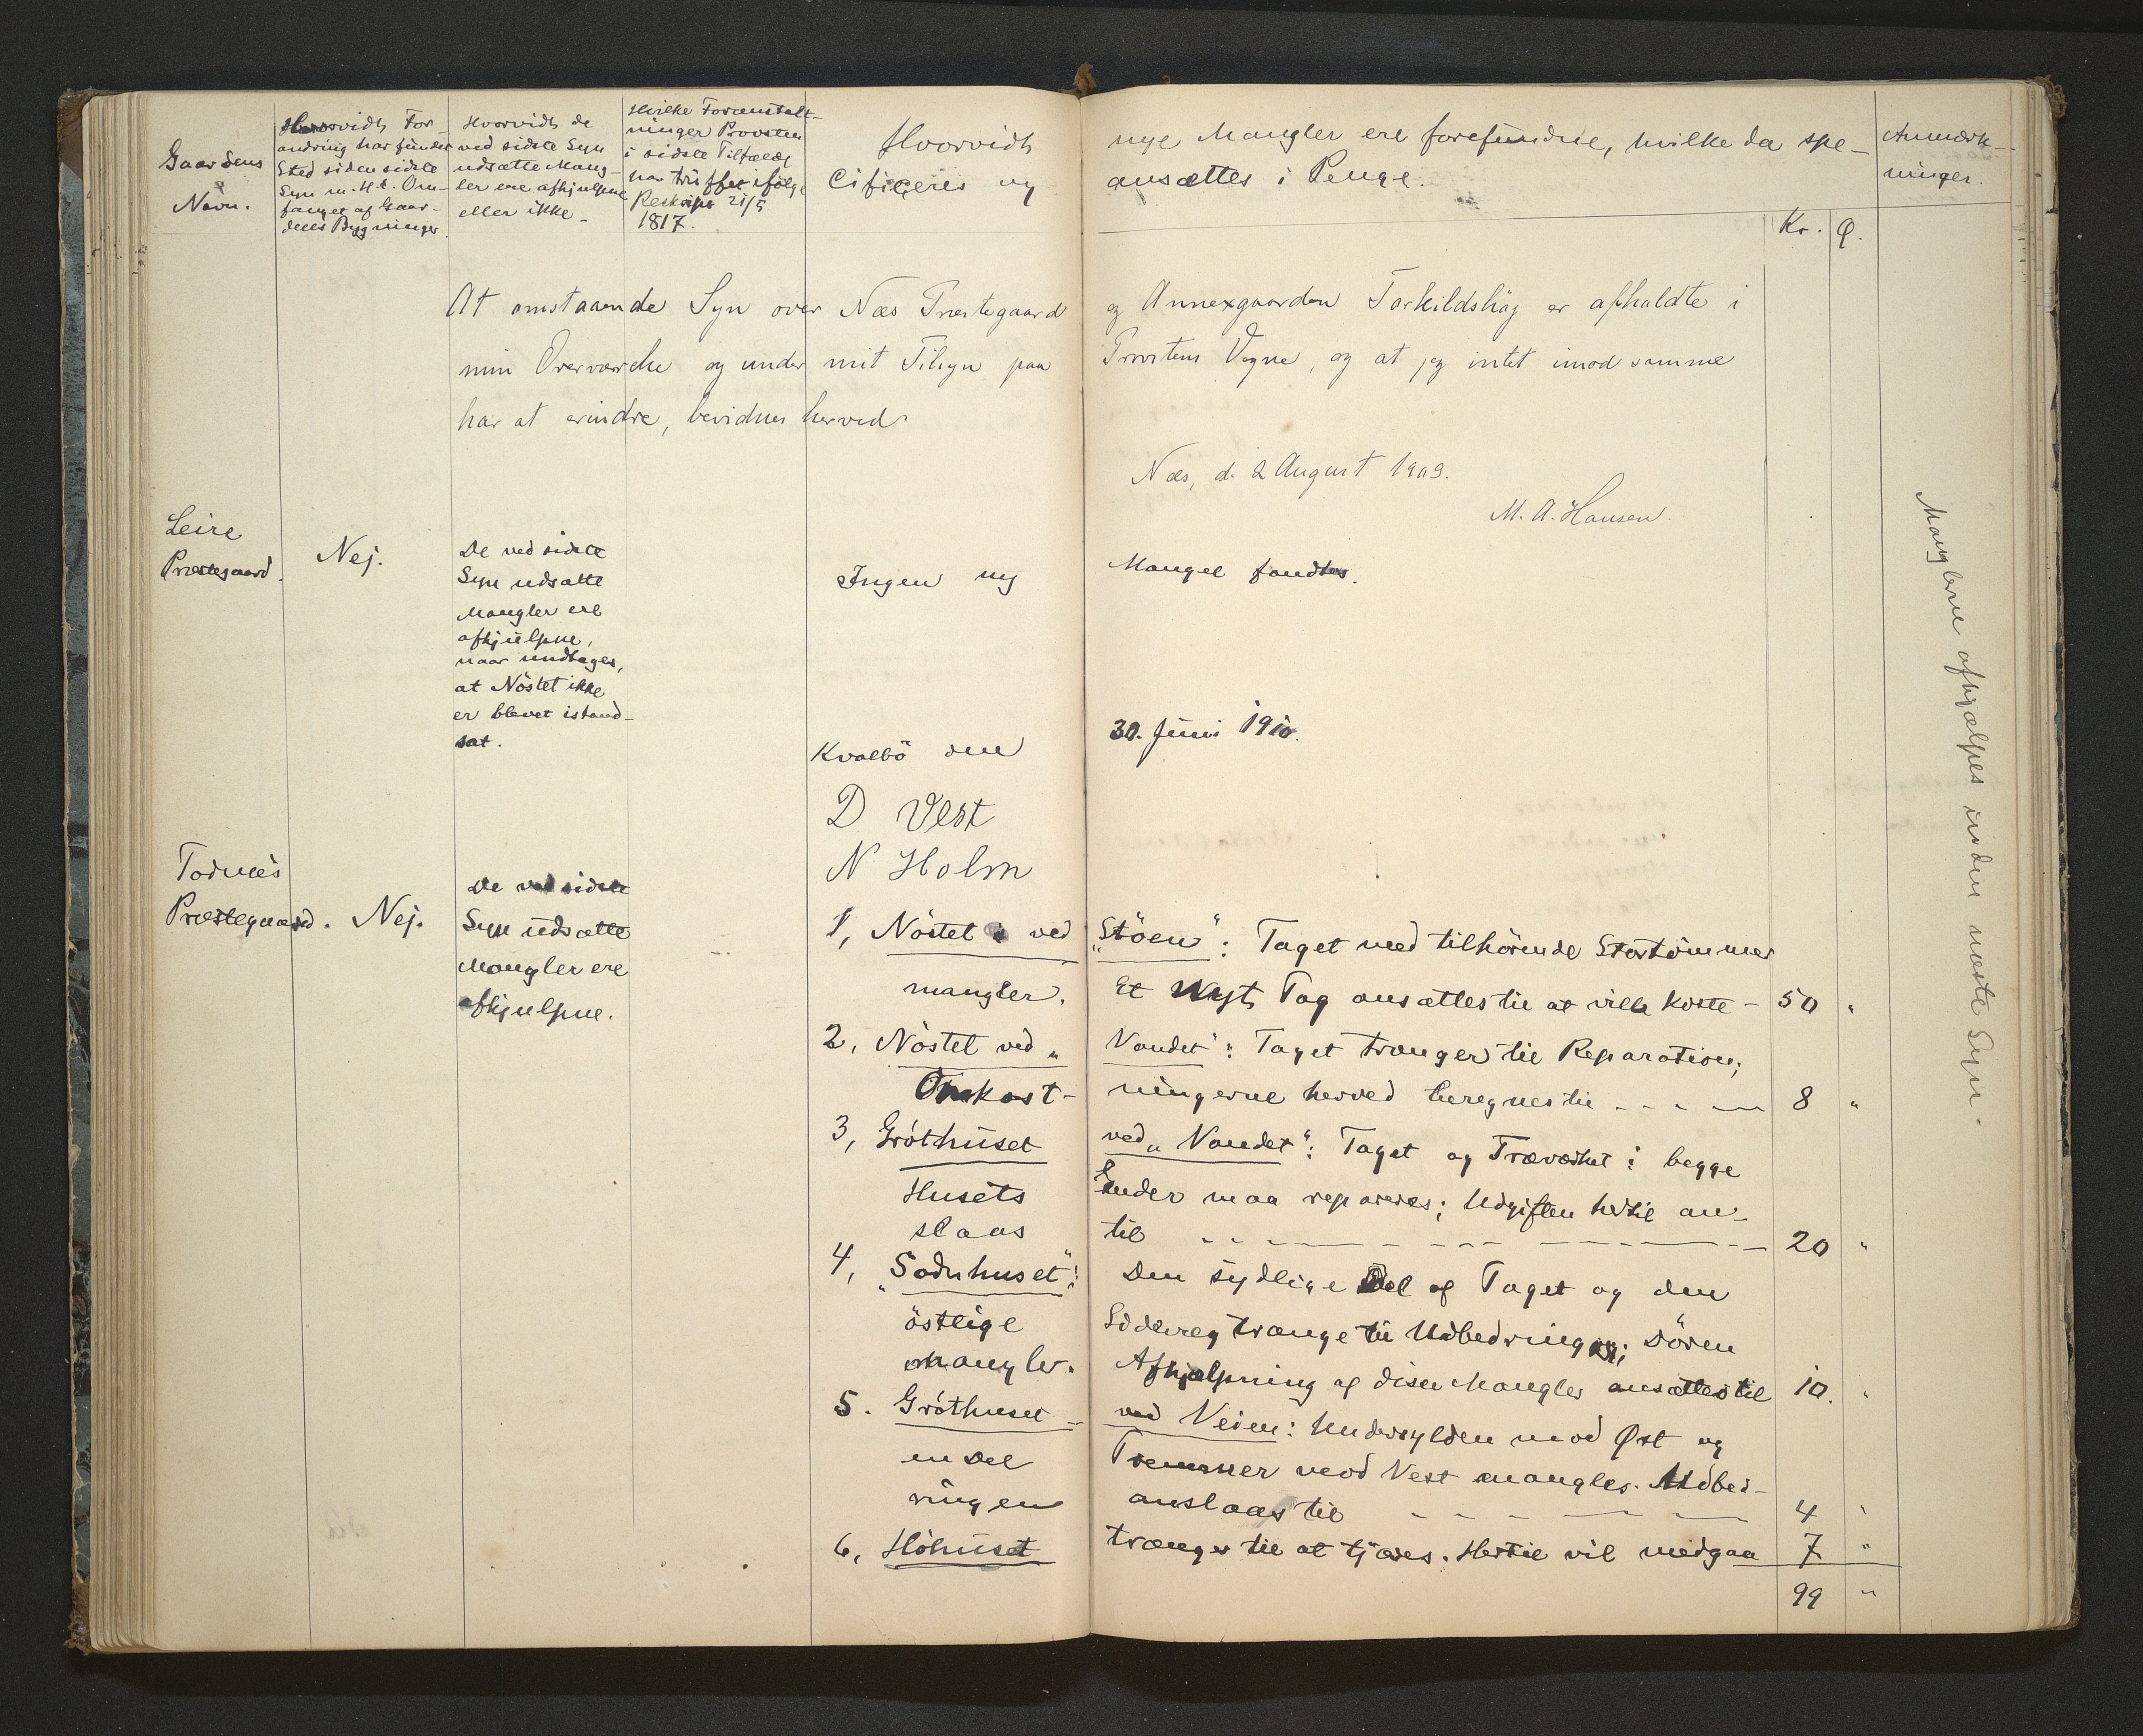 Gaardens
Navn.
Hvorvidt For-
andring har fundet
Sted siden sidste
Syn m. H. t. Om-
fanget af Gaar-
dens Bygninger.
Hvorvidt de
ved sidste Syn
udsatte Mang-
ler ere afhjulpne
eller ikke -
Hvilke Foranstalt-
ninger Provsten
i sidste Tilfælde
har truffet ifølge
Reskript 21/5
1817.
Hvorvidt nye Mangler ere forefundne, hvilke da spe-
cificeres og ansættes i Penge.
Anmærk-
ninger.
Kr. Ø.
At omstaaende Syn over Næs Præstegaard og Annexgaarden Torkildshøj er afholdte i
min Overværelse og under mit Tilsyn paa Provstens Vegne, og at jeg intet imod samme
har at erindre, bevidnes herved.
Næs, d. 2 August 1909.
M. A. Hansen.
Leire
Præstegaard.
Nej.
De ved sidste
Syn udsatte
Mangler ere
afhjulpne,
naar undtages,
at Nöstet ikke
er blevet istand-
sat.
Ingen ny Mangel fandtes.
Kvalbö den 30. Juni 1910.
D Vest
N Holm
Todnæs
Præstegaard.
Nej.
De ved sidste
Syn udsatte
Mangler ere
afhjulpne.
1, Nöstet ved „Stöen“: Taget med tilhörende Stortömmer
mangler. Et Nyt Tag ansættes til at ville koste - 50 "
2, Nöstet ved „Vandet“: Taget trænger til Reparation;
Omkost- ningerne herved beregnes til - - - - 8 "
3, Gróthúset ved „Vandet“: Taget og Træværket i begge
Husets Ender maa repareres; Udgiften hertil an-
slaas til - - - - - - 20 "
4, „Sodnhuset“: Den sydlige Del af Taget og den
östlige Sidevæg trænge til Udbedring; Dören
mangler. Afhjælpning af disse Mangler ansættes til 10. "
5. Gróthuset - ved Veien: Undersylden mod Øst og
en Del Tremmer mod Vest mangles. Udbed-
ringen anslaaes til - - - - 4 "
6, Höhúset trænger til at tjæres. Hertil vil medgaa 7 "
99 "
Manglerne afhjælpes inden næste Syn.